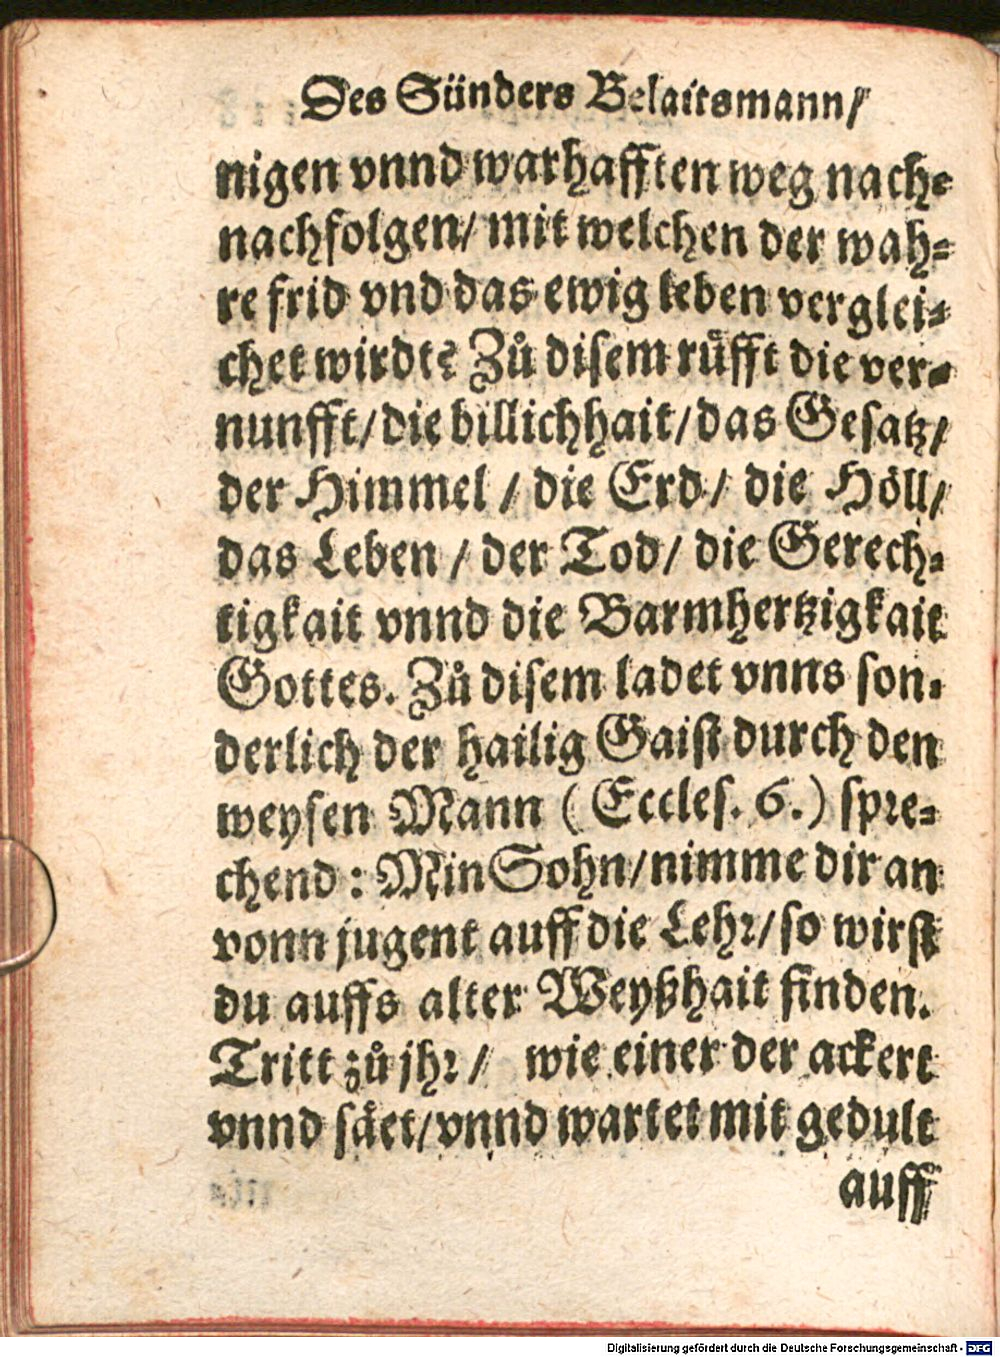 Des Sünders Belaitsmann/
nigen vnnd warhafften weg nach⸗
nachfolgen/ mit welchen der wah⸗
re frid vnd das ewig leben verglei⸗
chet wirdt? Zů disem rüfft die ver⸗
nunfft/ die billichhait/ das Gesatz/
der Himmel / die Erd/ die Höll/
das Leben / der Tod/ die Gerech⸗
tigkait vnnd die Barmhertzigkait
Gottes. Zů disem ladet vnns son⸗
derlich der hailig Gaist durch den
weysen Mann ( Eccles. 6.) spre⸗
chend: Min Sohn/ nimme dir an
vonn jugent auff die Lehr/ so wirst
du auffs alter Weyßhait finden.
Tritt zů jhr/ wie einer der ackert
vnnd säet/ vnnd wartet mit gedult
auff
Digitalisierung gefördert durch die Deutsche Forschungsgemeinschaft - DFG